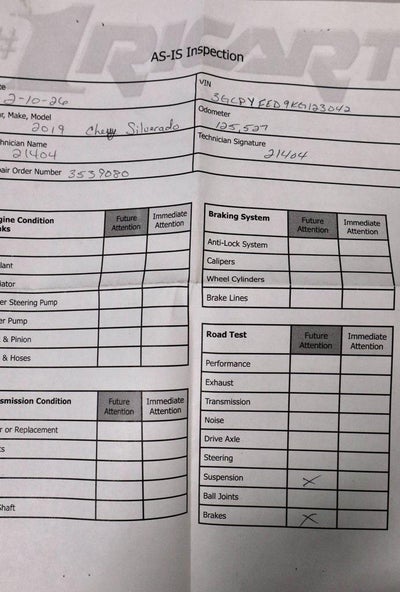 #1 RICART
AS-IS Inspection
te
2-10-26
VIN
3GCPYFED9KG123042
r, Make, Model
2019 Chevy Silverado
Odometer
125,527
hnician Name
21404
Technician Signature
21404
air Order Number 3539080
gine Condition
aks
Future Attention
Immediate Attention
lant
iator
er Steering Pump
er Pump
& Pinion
& Hoses
smission Condition
Future Attention
Immediate Attention
r or Replacement
ts
Shaft
Braking System
Future Attention
Immediate Attention
Anti-Lock System
Calipers
Wheel Cylinders
Brake Lines
Road Test
Future Attention
Immediate Attention
Performance
Exhaust
Transmission
Noise
Drive Axle
Steering
Suspension X
Ball Joints
Brakes X